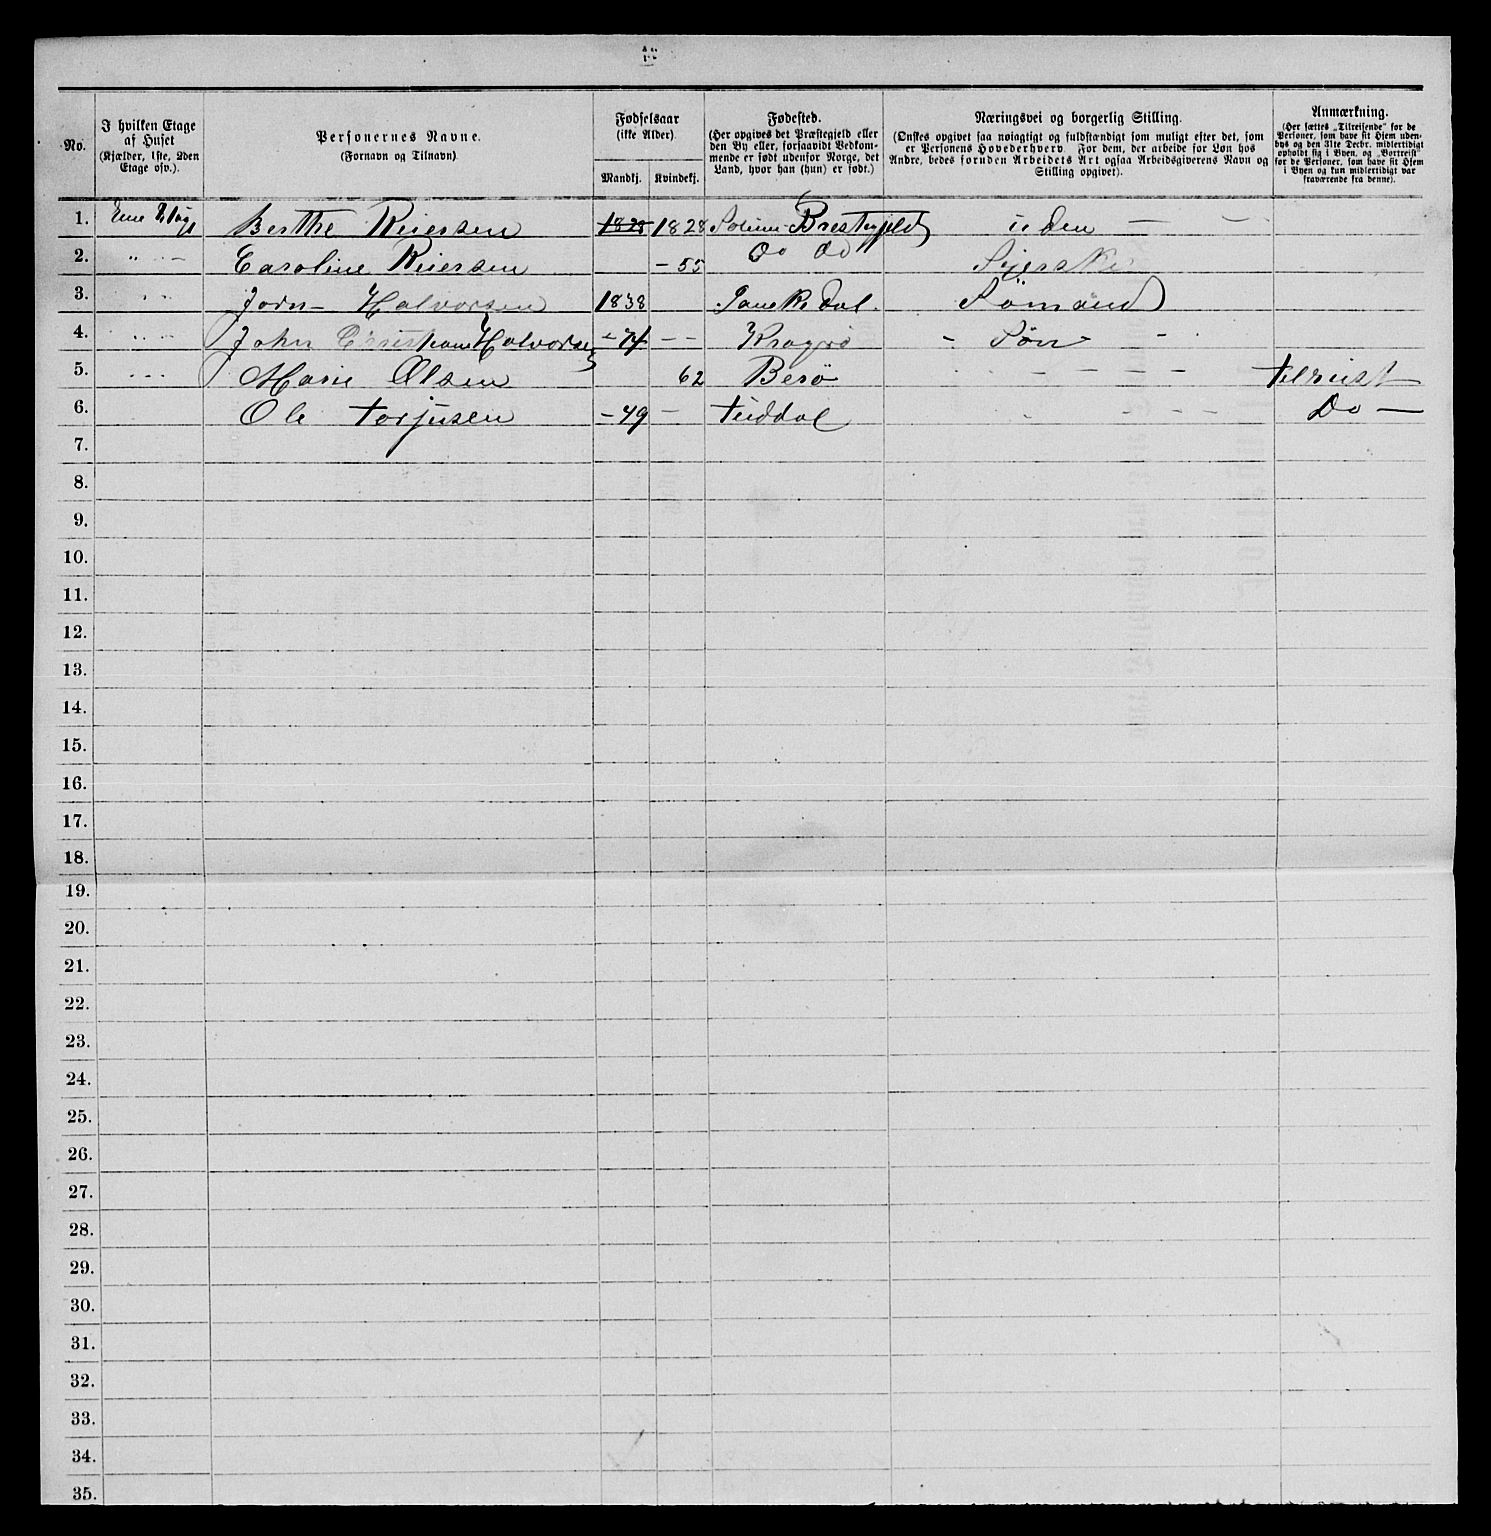 No.
I hvilken Etage af Huset
(Kjælder, 1ste, 2den Etage osv.).
Personernes Navne.
(Fornavn og Tilnavn)
Fødselsaar
(ikke Alder).
Mandkj. Kvindekj.
Fødested.
(Her opgives det Præstegjeld eller
den By eller, forsaavidt Vedkom-
mende er født udenfor Norge, det
Land, hvor han (hun) er født.)
Næringsvei og borgerlig Stilling.
(Ønskes opgivet saa nøiagtigt og fuldstændigt som muligt efter det, som
er Personens Hovederhverv. For dem, der arbeide for Løn hos
Andre, bedes foruden Arbeidets Art ogsaa Arbeidsgiverens Navn og
Stilling opgivet).
Anmærkning.
(Her sættes „Tilreisende" for de
Personer, som have sit Hjem uden-
bys og den 31te Decbr. midlertidigt
opholdt sig i Byen, og „Bortreist"
for de Personer, som have sit Hjem
i Byen og kun midlertidigt var
fraværende fra denne).
1. Berthe Reiersen 1828 1828 Solum Prestegjeld uden — —
2. " " — Caroline Reiersen — 55 Do Do Sijerske
3. " " Jorn — Halvorsen 1838 Sannikedal. Sömand
4. " " John Christian Halvorsen — 74 — — Kragerö - Sön - -
5. - - - Marie Olsen 62 Berö - — - — — — tilreist —
6. Ole torjusen — 49 — tuddal - - — — Do —
7.
8.
9.
10.
11.
12.
13.
14.
15.
16.
17.
18.
19.
20.
21.
22.
23.
24.
25.
26.
27.
28.
29.
30.
31.
32.
33.
34.
35.